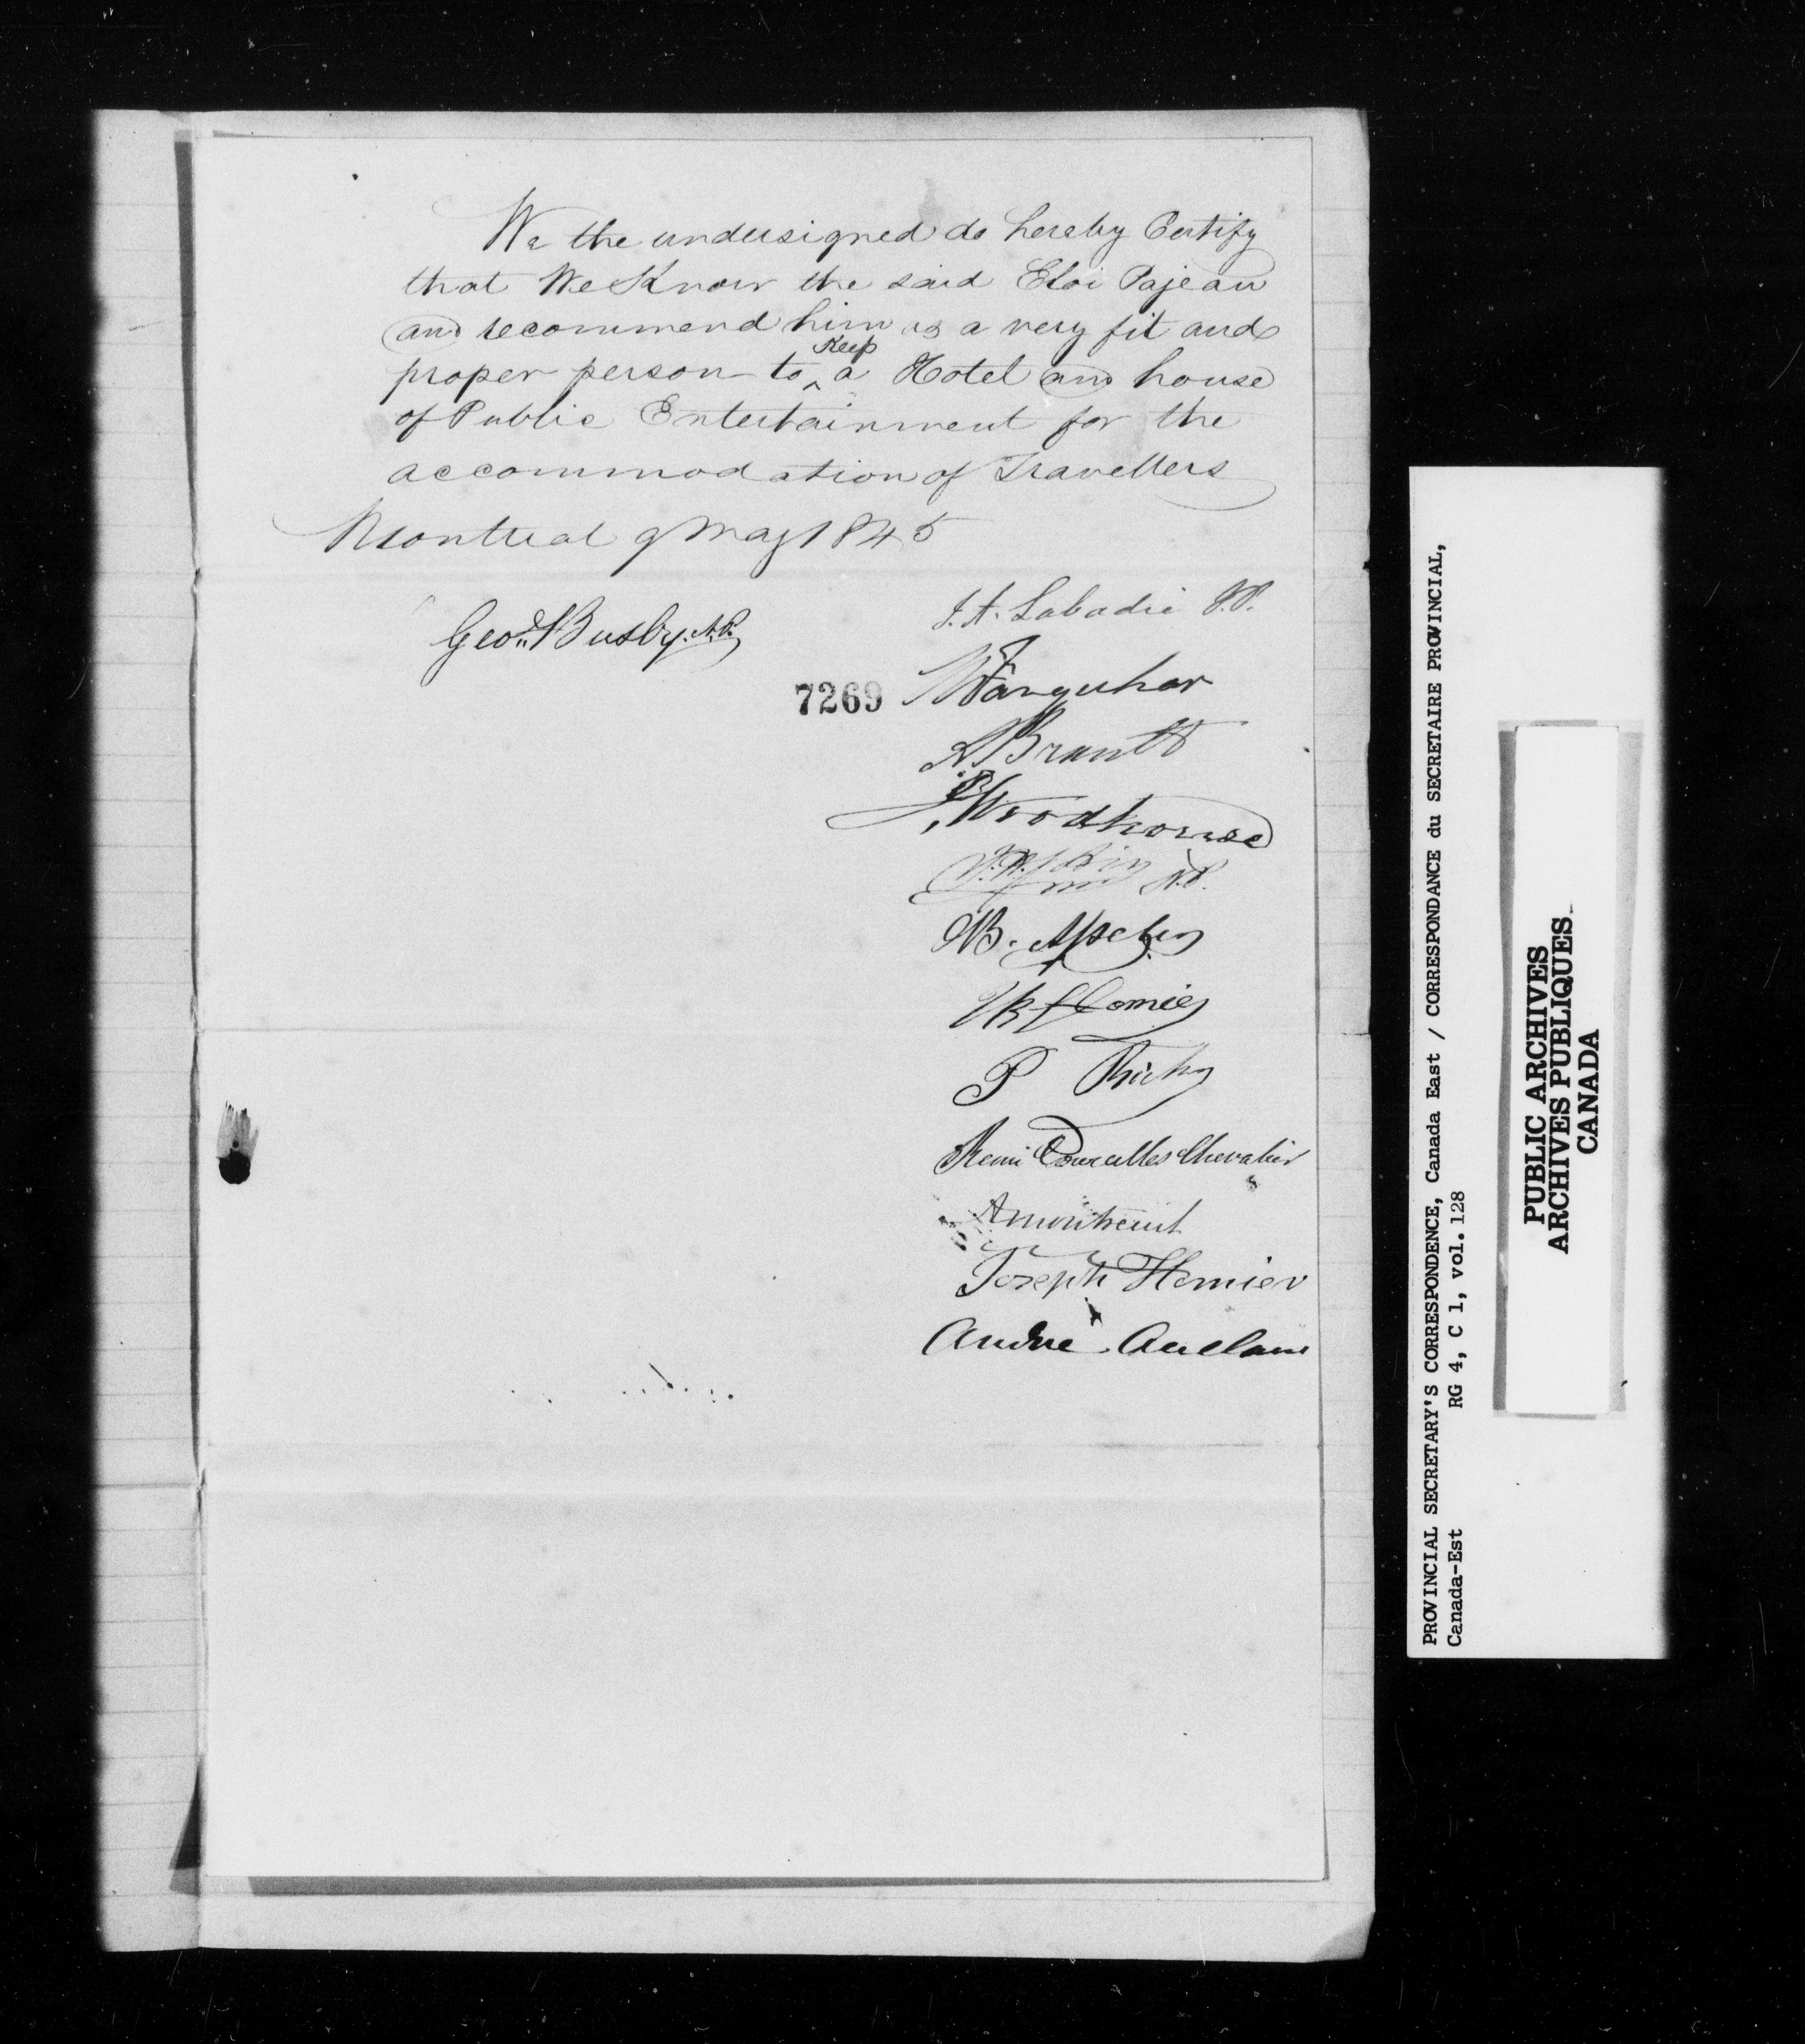 We the undersigned do hereby Certify
that We Know the said Eloi Pajeau
and recommend him as a very fit and
proper person to ^Keep a Hotel and house
of Public Entertainment for the
accommodation of Travellers
Montreal 9 May 1845
Geo. D. Busby. N.P.
J. A. Labadie
7269
W Farquhar
A Brant
Woodhouse
N.P.
B.
P
Remi Courcelles Chevalier
A Montreuil
Joseph
André Auclair
PROVINCIAL SECRETARY'S CORRESPONDENCE, Canada East / CORRESPONDANCE du SECRETAIRE PROVINCIAL,
Canada-Est RG 4, C 1, vol. 128
PUBLIC ARCHIVES
ARCHIVES PUBLIQUES
CANADA